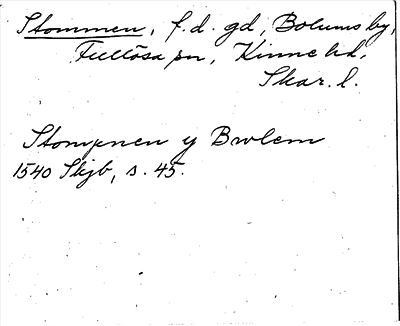 Stommen, f.d. gd, Bolums by,
Fullösa sn, Kinne hd,
Skar. l.
Stompnen y Bwlem
1540 Skjb, s. 45.